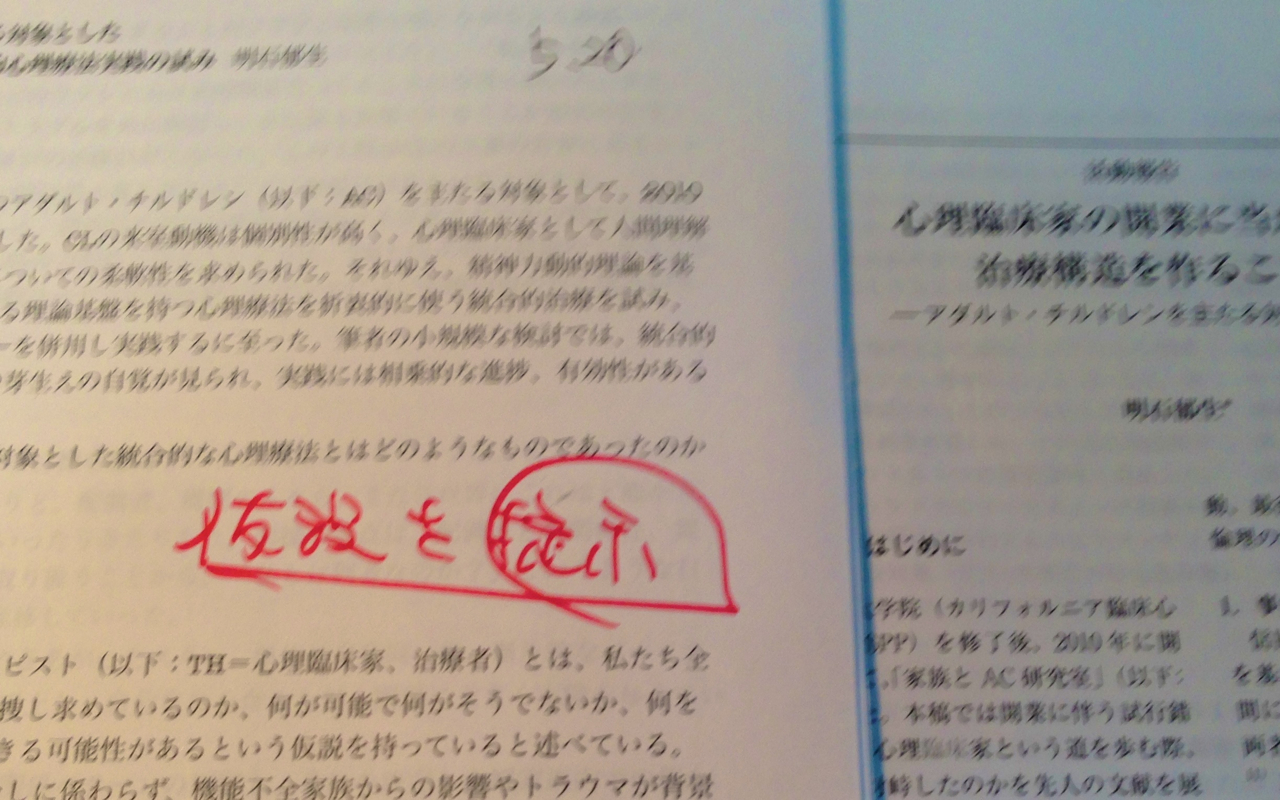 る対象とした
心理療法実践の試み 明石郁生
5.20
アダルト・チルドレン（以下：AC）を主たる対象として、2010
した。CLの来室動機は個別性が高く、心理臨床家として人間理解
についての柔軟性を求められた。それゆえ、精神力動的理論を基
る理論基盤を持つ心理療法を折衷的に使う統合的治療を試み、
ーを併用し実践するに至った。筆者の小規模な検討では、統合的
芽生えの自覚が見られ、実践には相乗的な進捗、有効性がある
対象とした統合的な心理療法とはどのようなものであったのか
仮設を提示
ピスト（以下：TH＝心理臨床家、治療者）とは、私たち全
捜し求めているのか、何が可能で何がそうでないか、何を
きる可能性があるという仮説を持っていると述べている。
しに係わらず、機能不全家族からの影響やトラウマが背景
活動報告
心理臨床家の開業に当
治療構造を作るこ
―アダルト・チルドレンを主たる対
明石郁生*
はじめに
学院（カリフォルニア臨床心
PP）を修了後、2010年に開
「家族とAC研究室」（以下：
本稿では開業に伴う試行錯
心理臨床家という道を歩む際、
時したのかを先人の文献を展
倫理の